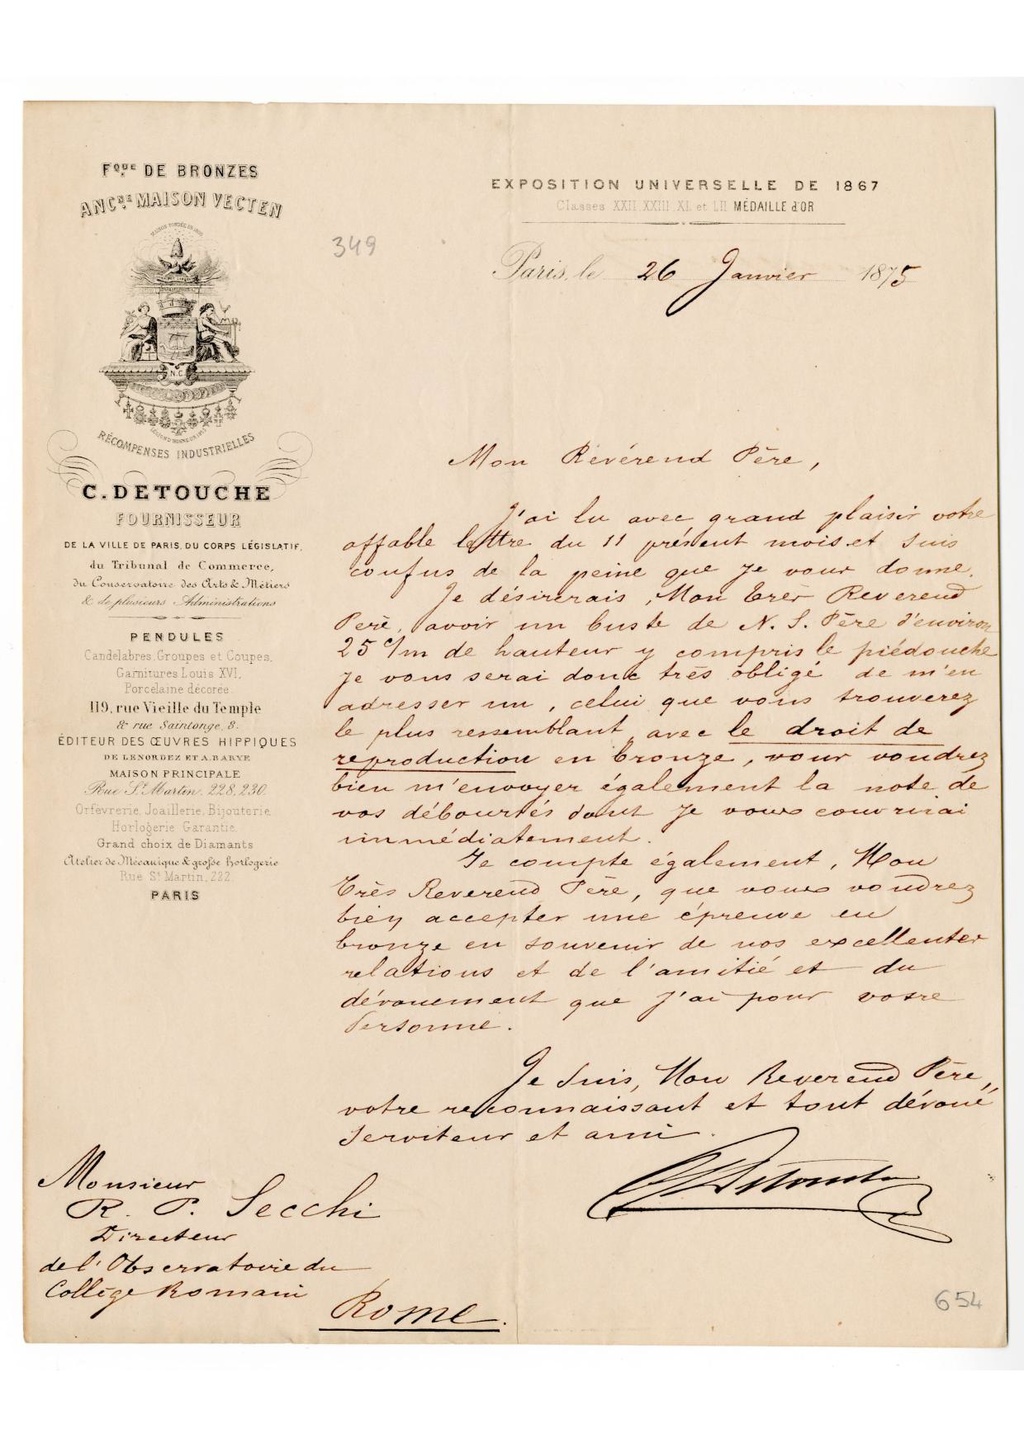 Fque DE BRONZES
ANCNE MAISON VECTEN
N.C
RÉCOMPENSES INDUSTRIELLES
C. DETOUCHE
FOURNISSEUR
DE LA VILLE DE PARIS, DU CORPS LÉGISLATIF,
du Tribunal de Commerce,
du Conservatoire des Arts & Métiers
& de plusieurs Administrations
PENDULES
Candelabres, Groupes et Coupes,
Garnitures Louis XVI,
Porcelaine décorée
119, rue Vieille du Temple
& rue Saintonge, 8.
ÉDITEUR DES ŒUVRES HIPPIQUES
DE LENORDEZ ET A. BARYE
MAISON PRINCIPALE
Rue St Martin, 228, 230
Orfèvrerie, Joaillerie, Bijouterie
Horlogerie Garantie
Grand choix de Diamants
Atelier de Mécanique & grosse horlogerie
Rue St Martin, 232
PARIS
EXPOSITION UNIVERSELLE DE 1867
Classes XXII, XXIII, XI, et LII MÉDAILLE d'OR
349
Paris, le 26 Janvier 1875
Mon Révérend Père,
J'ai lu avec grand plaisir votre
affable lettre du 11 présent mois et suis
confus de la peine que je vous donne.
Je désirerais, Mon Très Reverend
Père, avoir un buste de N. S. Père d'environ
25 c/m de hauteur y compris le piédouche
je vous serai donc très obligé de m'en
adresser un, celui que vous trouverez
le plus ressemblant avec le droit de
reproduction en bronze, vous voudrez
bien m'envoyer également la note de
vos déboursés dont je vous couvrirai
immédiatement.
Je compte également, Mon
Très Reverend Père, que vous voudrez
bien accepter une épreuve en
bronze en souvenir de nos excellentes
relations et de l'amitié et du
dévouement que j'ai pour votre
Personne.
Je suis, Mon Reverend Père,
votre reconnaissant et tout dévoué
Serviteur et ami.
C. Detouche
Monsieur
R. P. Secchi
Directeur
de l'Observatoire du
Collège Romain
Rome.
654